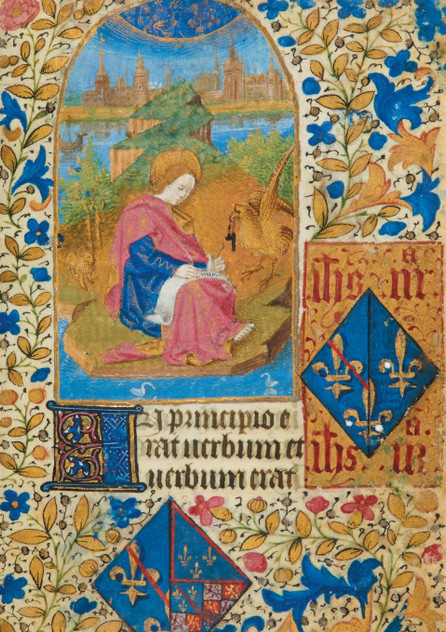 In principio e
rat uerbum et
uerbum erat
ihs
ihs